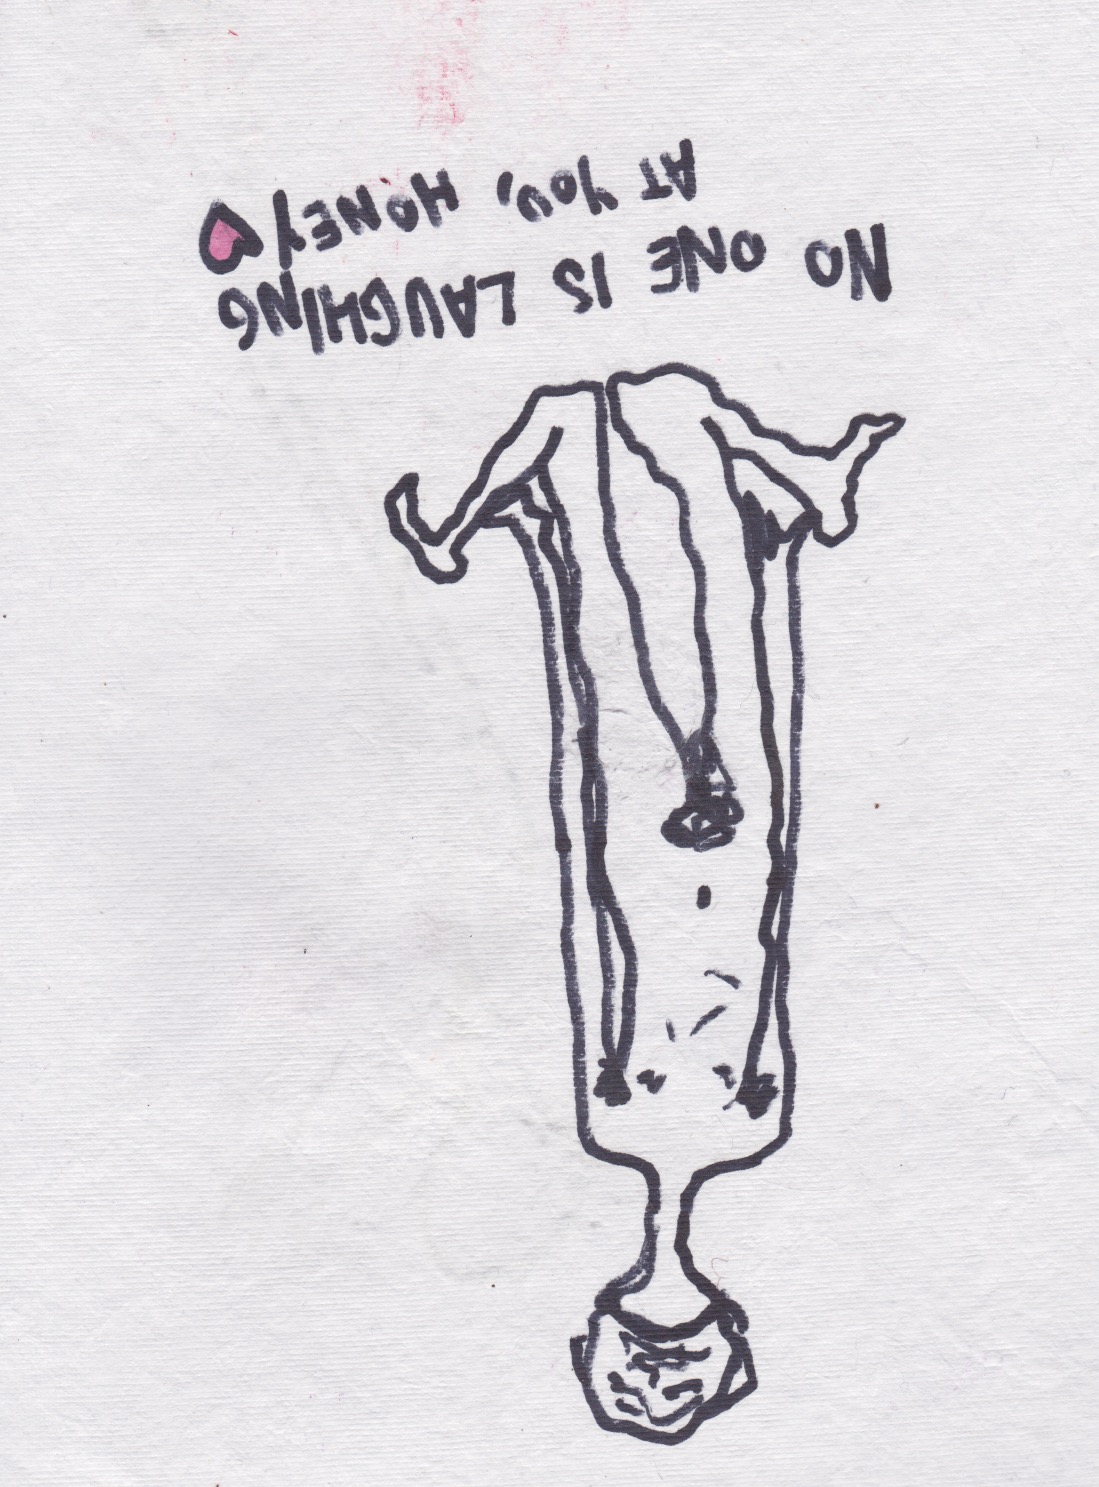 NO ONE IS LAUGHING
AT YOU, HONEY